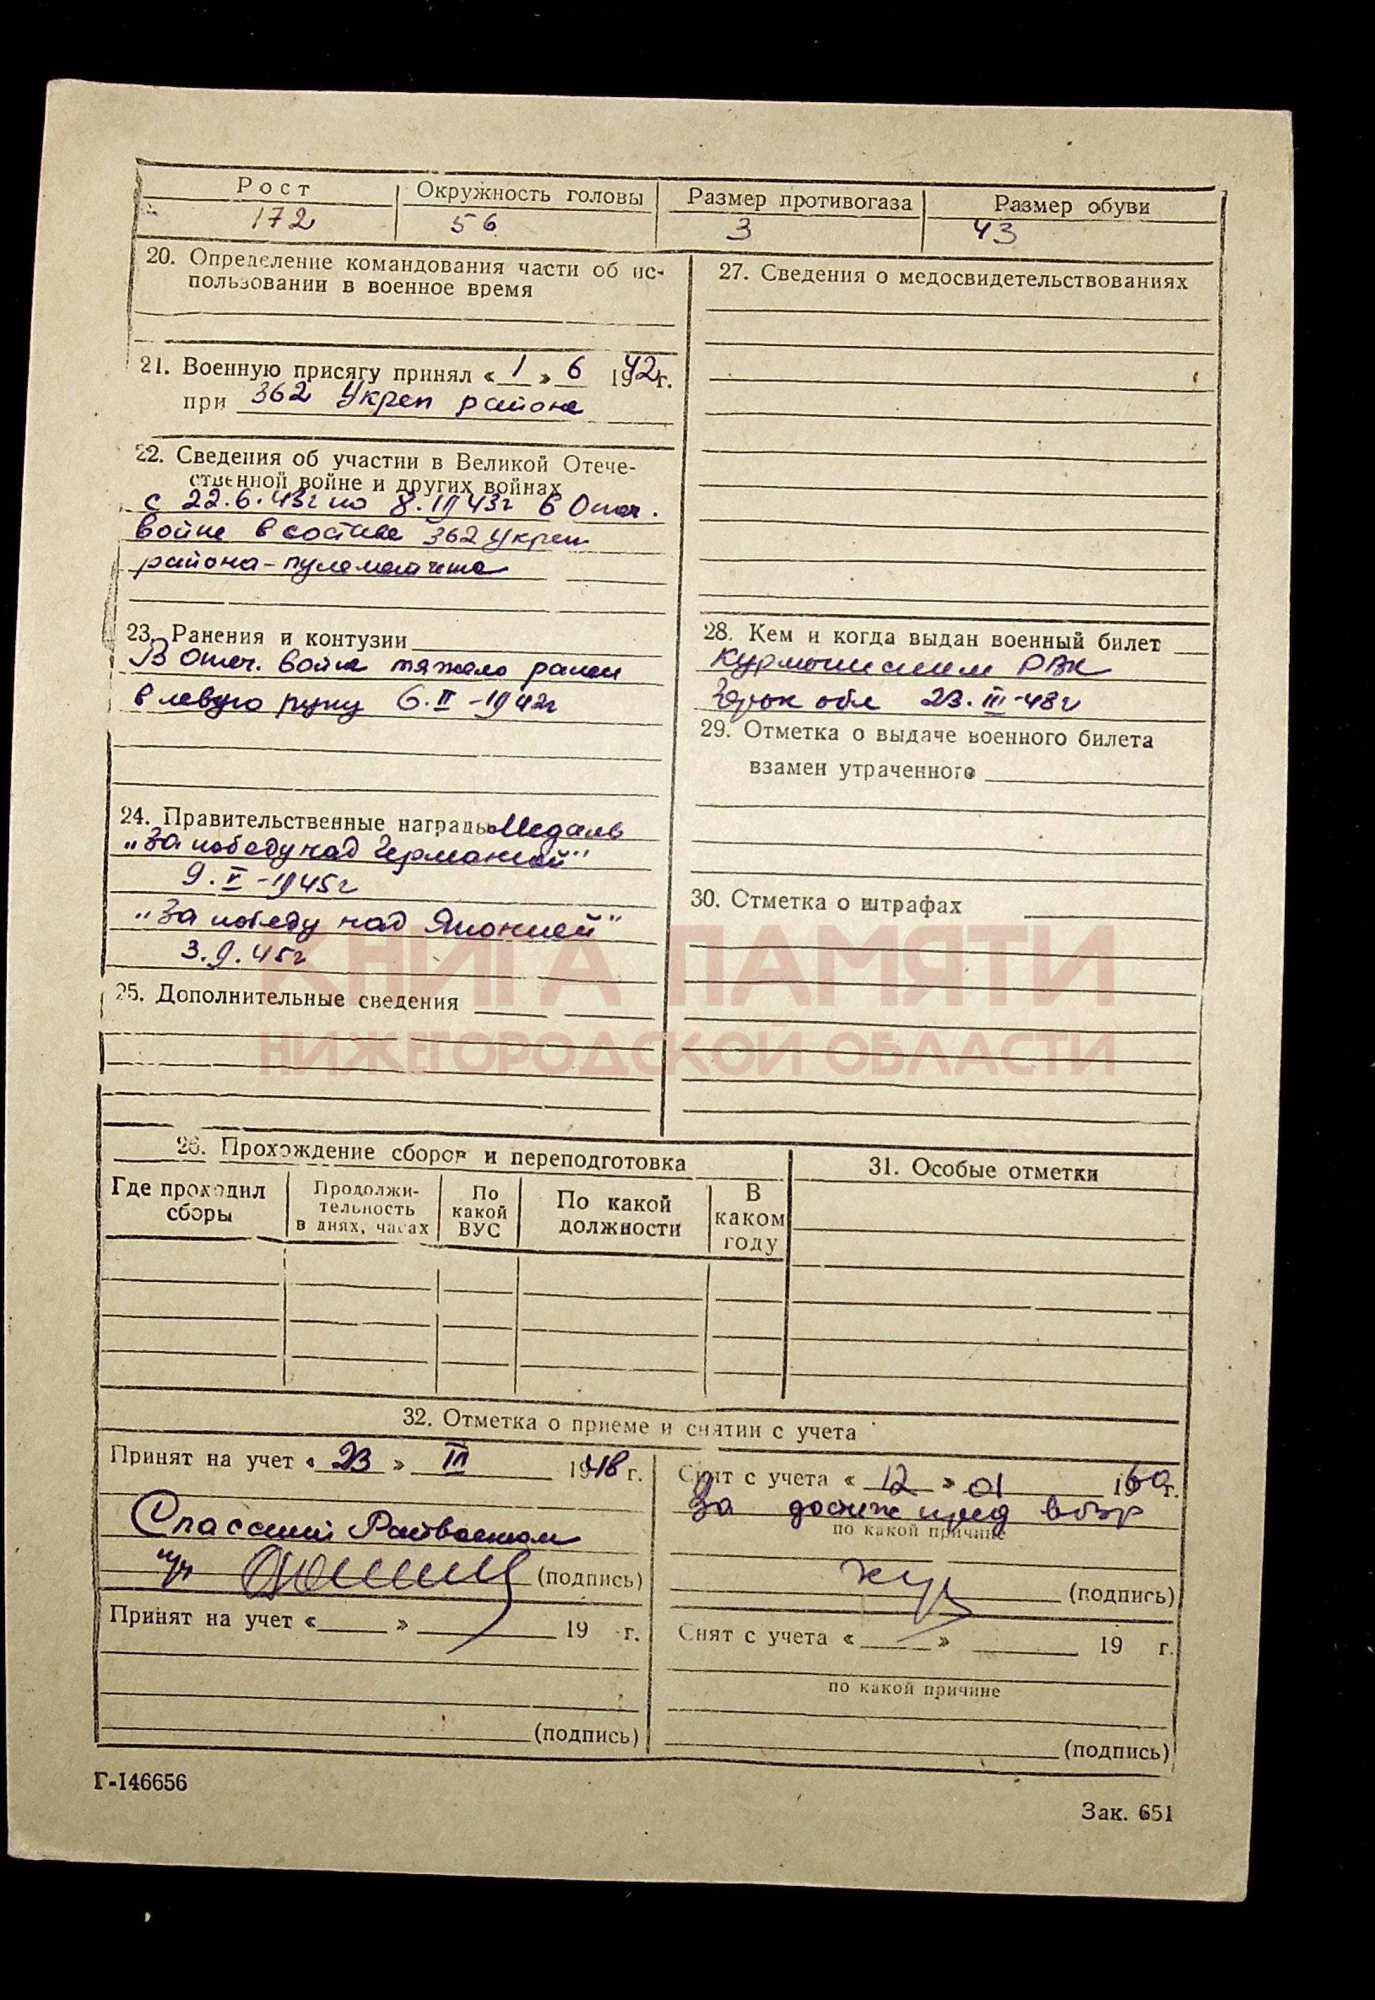 Рост
Окружность головы
Размер противогаза
Размер обуви
172
56
3
43
20. Определение командования части об ис-
пользовании в военное время
21. Военную присягу принял « 1 » 6 1942г.
при 362 Укреп района
22. Сведения об участии в Великой Отече-
ственной войне и других войнах
с 22.6.43г по 8.IV 43г в Отеч.
войне в составе 362 Укреп
района - пулеметчик
23. Ранения и контузии
В Отеч. войне тяжело ранен
в левую руку 6.II-1942г
24. Правительственные награды Медаль
"За победу над Германией"
9.V-1945г
"За победу над Японией"
3.9.45г
25. Дополнительные сведения
27. Сведения о медосвидетельствованиях
28. Кем и когда выдан военный билет
Курмышским РВК
Горьк обл 23.III-48г
29. Отметка о выдаче военного билета
взамен утраченного
30. Отметка о штрафах
КНИГА ПАМЯТИ
НИЖЕГОРОДСКОЙ ОБЛАСТИ
26. Прохождение сборов и переподготовка
Где проходил
сборы
Продолжи-
тельность
в днях, часах
По
какой
ВУС
По какой
должности
В
каком
году
31. Особые отметки
32. Отметка о приеме и снятии с учета
Принят на учет « 23 » III 1948 г.
Спасский Райвоенком
(подпись)
Принят на учет « » 19 г.
(подпись)
Снят с учета « 12 » 01 1960г.
За достиж пред возр
по какой причине
(подпись)
Снят с учета « » 19 г.
по какой причине
(подпись)
Г-146656
Зак. 651